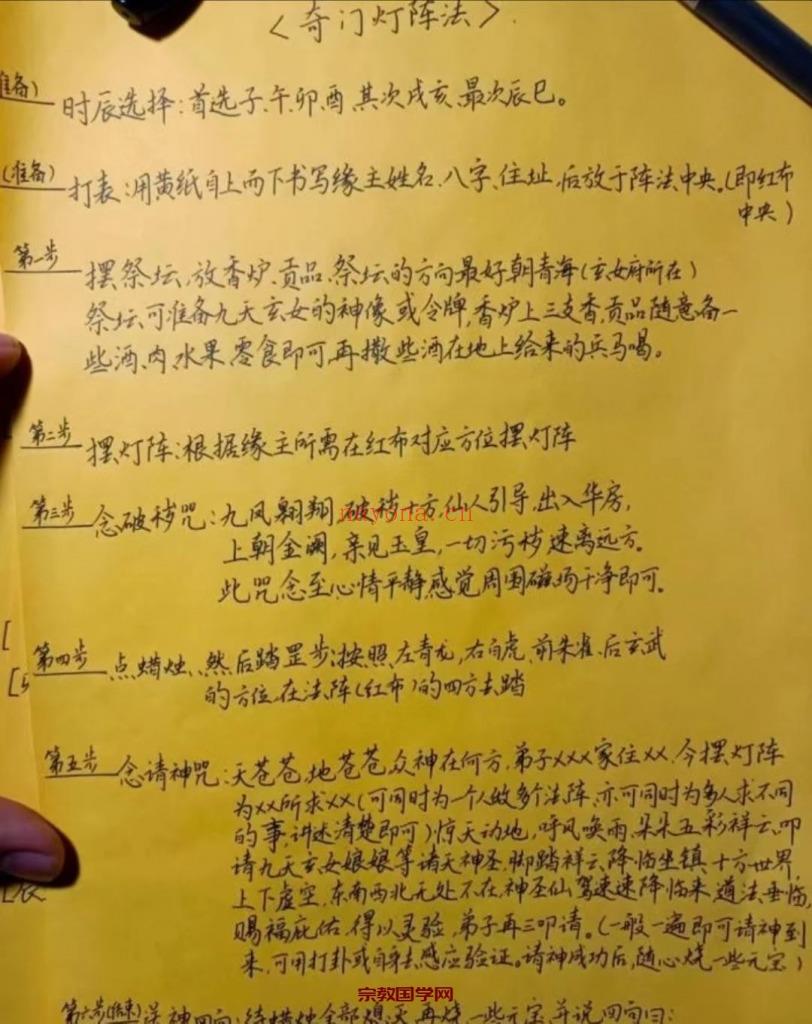 〈奇门灯阵法〉.
准备) 时辰选择:首选子、午、卯、酉,其次戌亥,最次辰巳。
(准备) 打表:用黄纸自上而下书写缘主姓名、八字、住址,后放于阵法中央。(即红布
中央)
第一步 摆祭坛,放香炉、贡品、祭坛的方向最好朝青海(玄女府所在)
祭坛可准备九天玄女的神像或令牌,香炉上三支香,贡品随意备一
些酒、肉、水果、零食即可,再撒些酒在地上给来的兵马喝。
第二步 摆灯阵:根据缘主所需在红布对应方位摆灯阵
第三步 念破秽咒:九凤翱翔,破秽十方,仙人引导,出入华房,
上朝金阙,亲见玉皇,一切污秽速离远方。
此咒念至心情平静,感觉周围磁场干净即可。
第四步 点蜡烛、然后踏罡步:按照左青龙,右白虎、前朱雀、后玄武
的方位,在法阵(红布)的四方去踏
第五步 念请神咒:天苍苍,地苍苍,众神在何方,弟子XXX家住XX,今摆灯阵
为XX所求XX(可同时为一个人做多个法阵,亦可同时为多人求不同
的事,讲述清楚即可)惊天动地,呼风唤雨,朵朵五彩祥云,叩
请九天玄女娘娘等诸天神圣,脚踏祥云,降临坐镇,十方世界,
上下虚空,东南西北无处不在,神圣仙驾速速降临来,道法垂临,
赐福庇佑,得以灵验,弟子再三叩请。(一般一遍即可请神到
来,可用打卦或自身去感应验证。请神成功后,随心烧一些元宝)
第六步(结束) 送神回向:待蜡烛全部熄灭,再烧一些元宝,并说回向曰:
nkyona.cn
宗教国学网